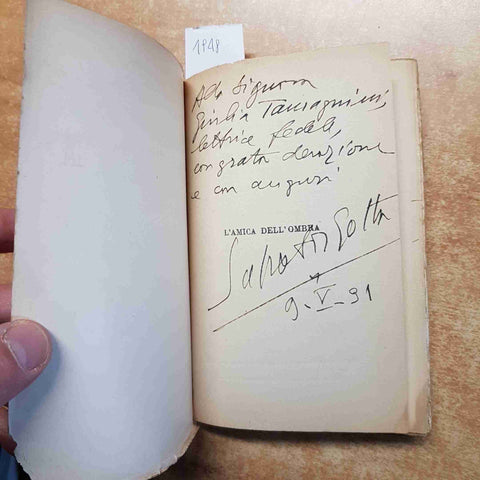 1948
Alla Signora
Giulia Tamagnini,
lettrice fedele,
con grata devozione
e con auguri
L'AMICA DELL'OMBRA
Salvator Gotta
9-V-31